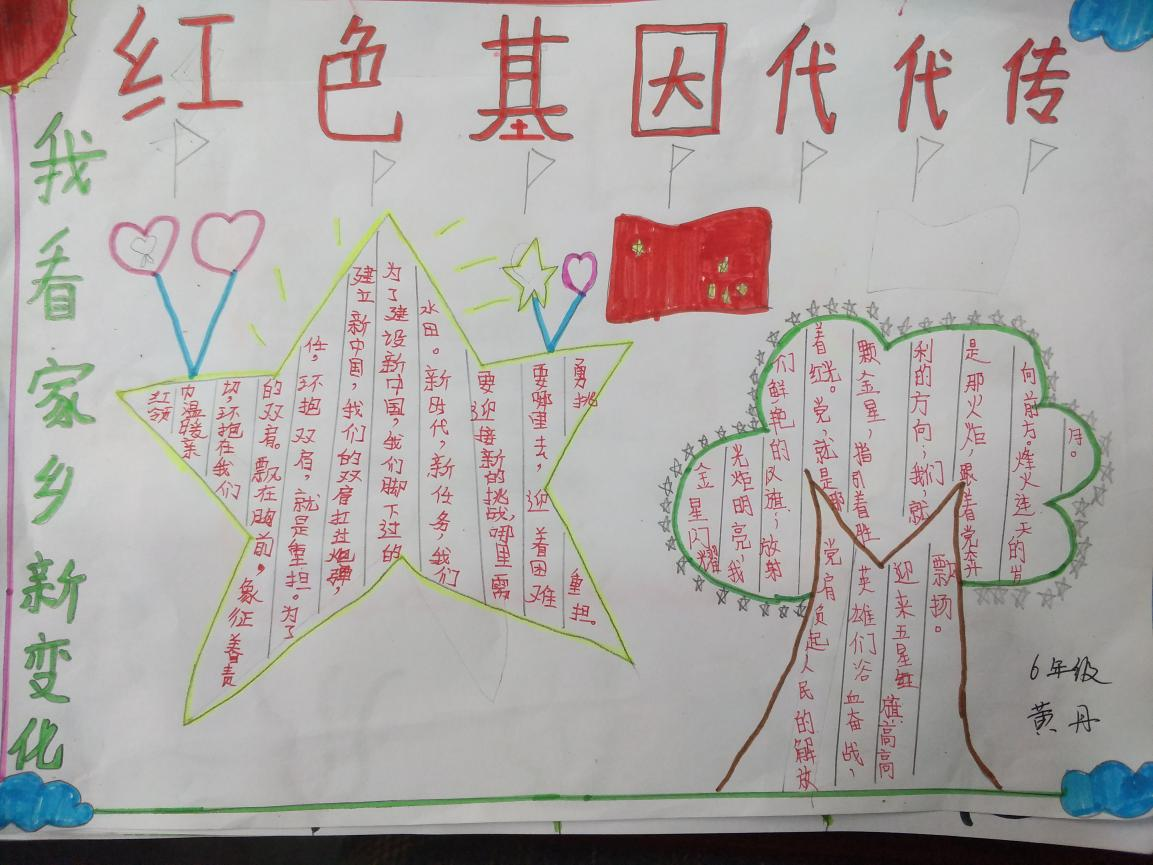 红色基因代代传
我看家乡新变化
红领
巾温暖亲
切,环抱在我们
的双肩。飘在胸前,象征着责
任,环抱双肩,就是重担。为了
建立新中国,我们的双肩扛炮弹,
为了建设新中国,我们脚下过的
水田。新时代,新任务,我们
要迎接新的挑战,哪里需
要哪里去,迎着困难
勇挑重担。
金星闪耀
光炬明亮,我
们鲜艳的队旗;放射
着红光。党,就是那
颗金星,指引着胜
利的方向;我们,就
是那火炬,跟着党奔
向前方。烽火连天的岁
月。
党肩负起人民的解放
英雄们浴血奋战,
迎来五星红旗高高
飘扬。
6年级
黄丹